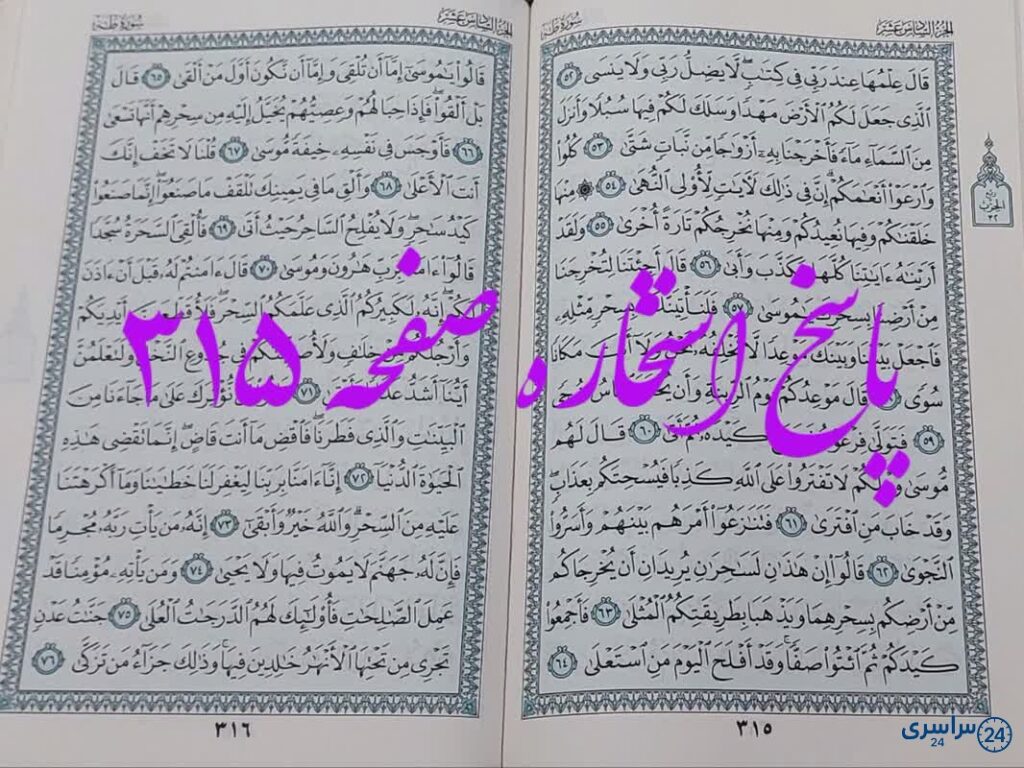 الجزء السادس عشر
سورة طه
قَالَ عِلْمُهَا عِندَ رَبِّي فِي كِتَٰبٍۖ لَّا يَضِلُّ رَبِّي وَلَا يَنسَى ٥٢
ٱلَّذِي جَعَلَ لَكُمُ ٱلْأَرْضَ مَهْدًا وَسَلَكَ لَكُمْ فِيهَا سُبُلًا وَأَنزَلَ
مِنَ ٱلسَّمَآءِ مَآءً فَأَخْرَجْنَا بِهِۦٓ أَزْوَٰجًا مِّن نَّبَاتٍ شَتَّىٰ ٥٣ كُلُوا۟
وَٱرْعَوْا۟ أَنْعَٰمَكُمْۗ إِنَّ فِي ذَٰلِكَ لَءَايَٰتٍ لِّأُو۟لِي ٱلنُّهَىٰ ٥٤ ۞ مِنْهَا
خَلَقْنَٰكُمْ وَفِيهَا نُعِيدُكُمْ وَمِنْهَا نُخْرِجُكُمْ تَارَةً أُخْرَىٰ ٥٥ وَلَقَدْ
أَرَيْنَٰهُ ءَايَٰتِنَا كُلَّهَا فَكَذَّبَ وَأَبَىٰ ٥٦ قَالَ أَجِئْتَنَا لِتُخْرِجَنَا
مِنْ أَرْضِنَا بِسِحْرِكَ يَٰمُوسَىٰ ٥٧ فَلَنَأْتِيَنَّكَ بِسِحْرٍ مِّثْلِهِۦ
فَٱجْعَلْ بَيْنَنَا وَبَيْنَكَ مَوْعِدًا لَّا نُخْلِفُهُۥ نَحْنُ وَلَآ أَنتَ مَكَانًا
سُوًى قَالَ مَوْعِدُكُمْ يَوْمُ ٱلزِّينَةِ وَأَن يُحْشَرَ ٱلنَّاسُ ضُحًى
٥٩ فَتَوَلَّىٰ فِرْعَوْنُ فَجَمَعَ كَيْدَهُۥ ثُمَّ أَتَىٰ ٦٠ قَالَ لَهُم
مُّوسَىٰ وَيْلَكُمْ لَا تَفْتَرُوا۟ عَلَى ٱللَّهِ كَذِبًا فَيُسْحِتَكُم بِعَذَابٍۖ
وَقَدْ خَابَ مَنِ ٱفْتَرَىٰ ٦١ فَتَنَٰزَعُوٓا۟ أَمْرَهُم بَيْنَهُمْ وَأَسَرُّوا۟
ٱلنَّجْوَىٰ ٦٢ قَالُوٓا۟ إِنْ هَٰذَٰنِ لَسَٰحِرَٰنِ يُرِيدَانِ أَن يُخْرِجَاكُم
مِّنْ أَرْضِكُم بِسِحْرِهِمَا وَيَذْهَبَا بِطَرِيقَتِكُمُ ٱلْمُثْلَىٰ ٦٣ فَأَجْمِعُوا۟
كَيْدَكُمْ ثُمَّ ٱئْتُوا۟ صَفًّاۚ وَقَدْ أَفْلَحَ ٱلْيَوْمَ مَنِ ٱسْتَعْلَىٰ ٦٤
٣١٥
الحزب
٣٢
الجزء السادس عشر
سورة طه
قَالُوا۟ يَٰمُوسَىٰٓ إِمَّآ أَن تُلْقِيَ وَإِمَّآ أَن نَّكُونَ أَوَّلَ مَنْ أَلْقَىٰ ٦٥ قَالَ
بَلْ أَلْقُوا۟ۖ فَإِذَا حِبَالُهُمْ وَعِصِيُّهُمْ يُخَيَّلُ إِلَيْهِ مِن سِحْرِهِمْ أَنَّهَا تَسْعَىٰ
٦٦ فَأَوْجَسَ فِي نَفْسِهِۦ خِيفَةً مُّوسَىٰ ٦٧ قُلْنَا لَا تَخَفْ إِنَّكَ
أَنتَ ٱلْأَعْلَىٰ ٦٨ وَأَلْقِ مَا فِي يَمِينِكَ تَلْقَفْ مَا صَنَعُوٓا۟ۖ إِنَّمَا صَنَعُوا۟
كَيْدُ سَٰحِرٍۖ وَلَا يُفْلِحُ ٱلسَّاحِرُ حَيْثُ أَتَىٰ ٦٩ فَأُلْقِيَ ٱلسَّحَرَةُ سُجَّدًا
قَالُوٓا۟ ءَامَنَّا بِرَبِّ هَٰرُونَ وَمُوسَىٰ ٧٠ قَالَ ءَامَنتُمْ لَهُۥ قَبْلَ أَنْ ءَاذَنَ
لَكُمْۖ إِنَّهُۥ لَكَبِيرُكُمُ ٱلَّذِي عَلَّمَكُمُ ٱلسِّحْرَۖ فَلَأُقَطِّعَنَّ أَيْدِيَكُمْ
وَأَرْجُلَكُم مِّنْ خِلَٰفٍ وَلَأُصَلِّبَنَّكُمْ فِي جُذُوعِ ٱلنَّخْلِ وَلَتَعْلَمُنَّ
أَيُّنَآ أَشَدُّ عَذَابًا وَأَبْقَىٰ ٧١ قَالُوا۟ لَن نُّؤْثِرَكَ عَلَىٰ مَا جَآءَنَا مِنَ
ٱلْبَيِّنَٰتِ وَٱلَّذِي فَطَرَنَاۖ فَٱقْضِ مَآ أَنتَ قَاضٍۖ إِنَّمَا تَقْضِي هَٰذِهِ
ٱلْحَيَوٰةَ ٱلدُّنْيَآ ٧٢ إِنَّآ ءَامَنَّا بِرَبِّنَا لِيَغْفِرَ لَنَا خَطَٰيَٰنَا وَمَآ أَكْرَهْتَنَا
عَلَيْهِ مِنَ ٱلسِّحْرِۗ وَٱللَّهُ خَيْرٌ وَأَبْقَىٰٓ ٧٣ إِنَّهُۥ مَن يَأْتِ رَبَّهُۥ مُجْرِمًا
فَإِنَّ لَهُۥ جَهَنَّمَ لَا يَمُوتُ فِيهَا وَلَا يَحْيَىٰ ٧٤ وَمَن يَأْتِهِۦ مُؤْمِنًا قَدْ
عَمِلَ ٱلصَّٰلِحَٰتِ فَأُو۟لَٰٓئِكَ لَهُمُ ٱلدَّرَجَٰتُ ٱلْعُلَىٰ ٧٥ جَنَّٰتُ عَدْنٍ
تَجْرِي مِن تَحْتِهَا ٱلْأَنْهَٰرُ خَٰلِدِينَ فِيهَاۚ وَذَٰلِكَ جَزَآءُ مَن تَزَكَّىٰ ٧٦
٣١٦
پاسخ استخاره صفحه ۳۱۵
سراسری
24
24